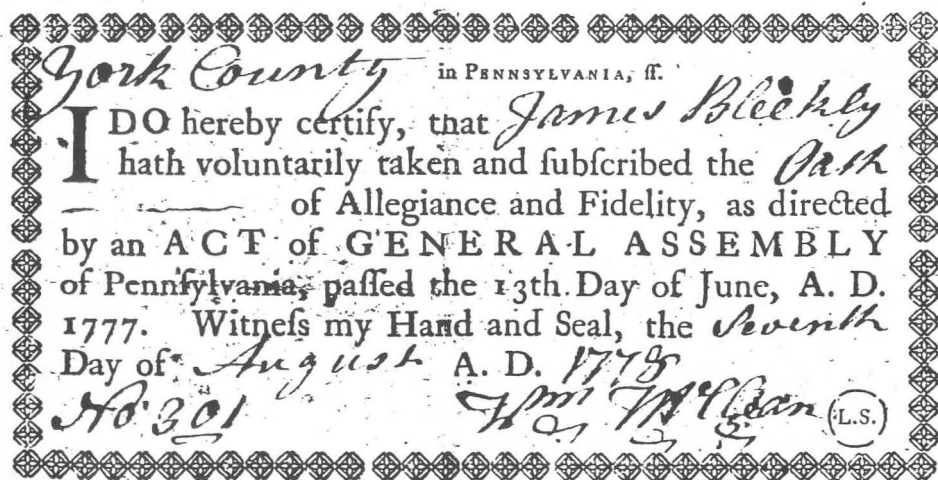 York County in PENNSYLVANIA, ſſ.
I DO hereby certify, that James Bleekly
hath voluntarily taken and ſubſcribed the Oath
of Allegiance and Fidelity, as directed
by an ACT of GENERAL ASSEMBLY
of Pennſylvania, paſſed the 13th Day of June, A. D.
1777. Witneſs my Hand and Seal, the Seventh
Day of August A. D. 1778
No 301 Wm McClean L.S.